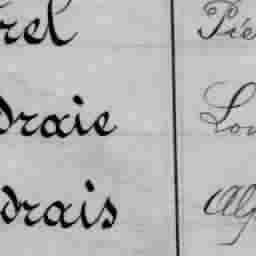 rel Pie
draie Lou
drais Alp